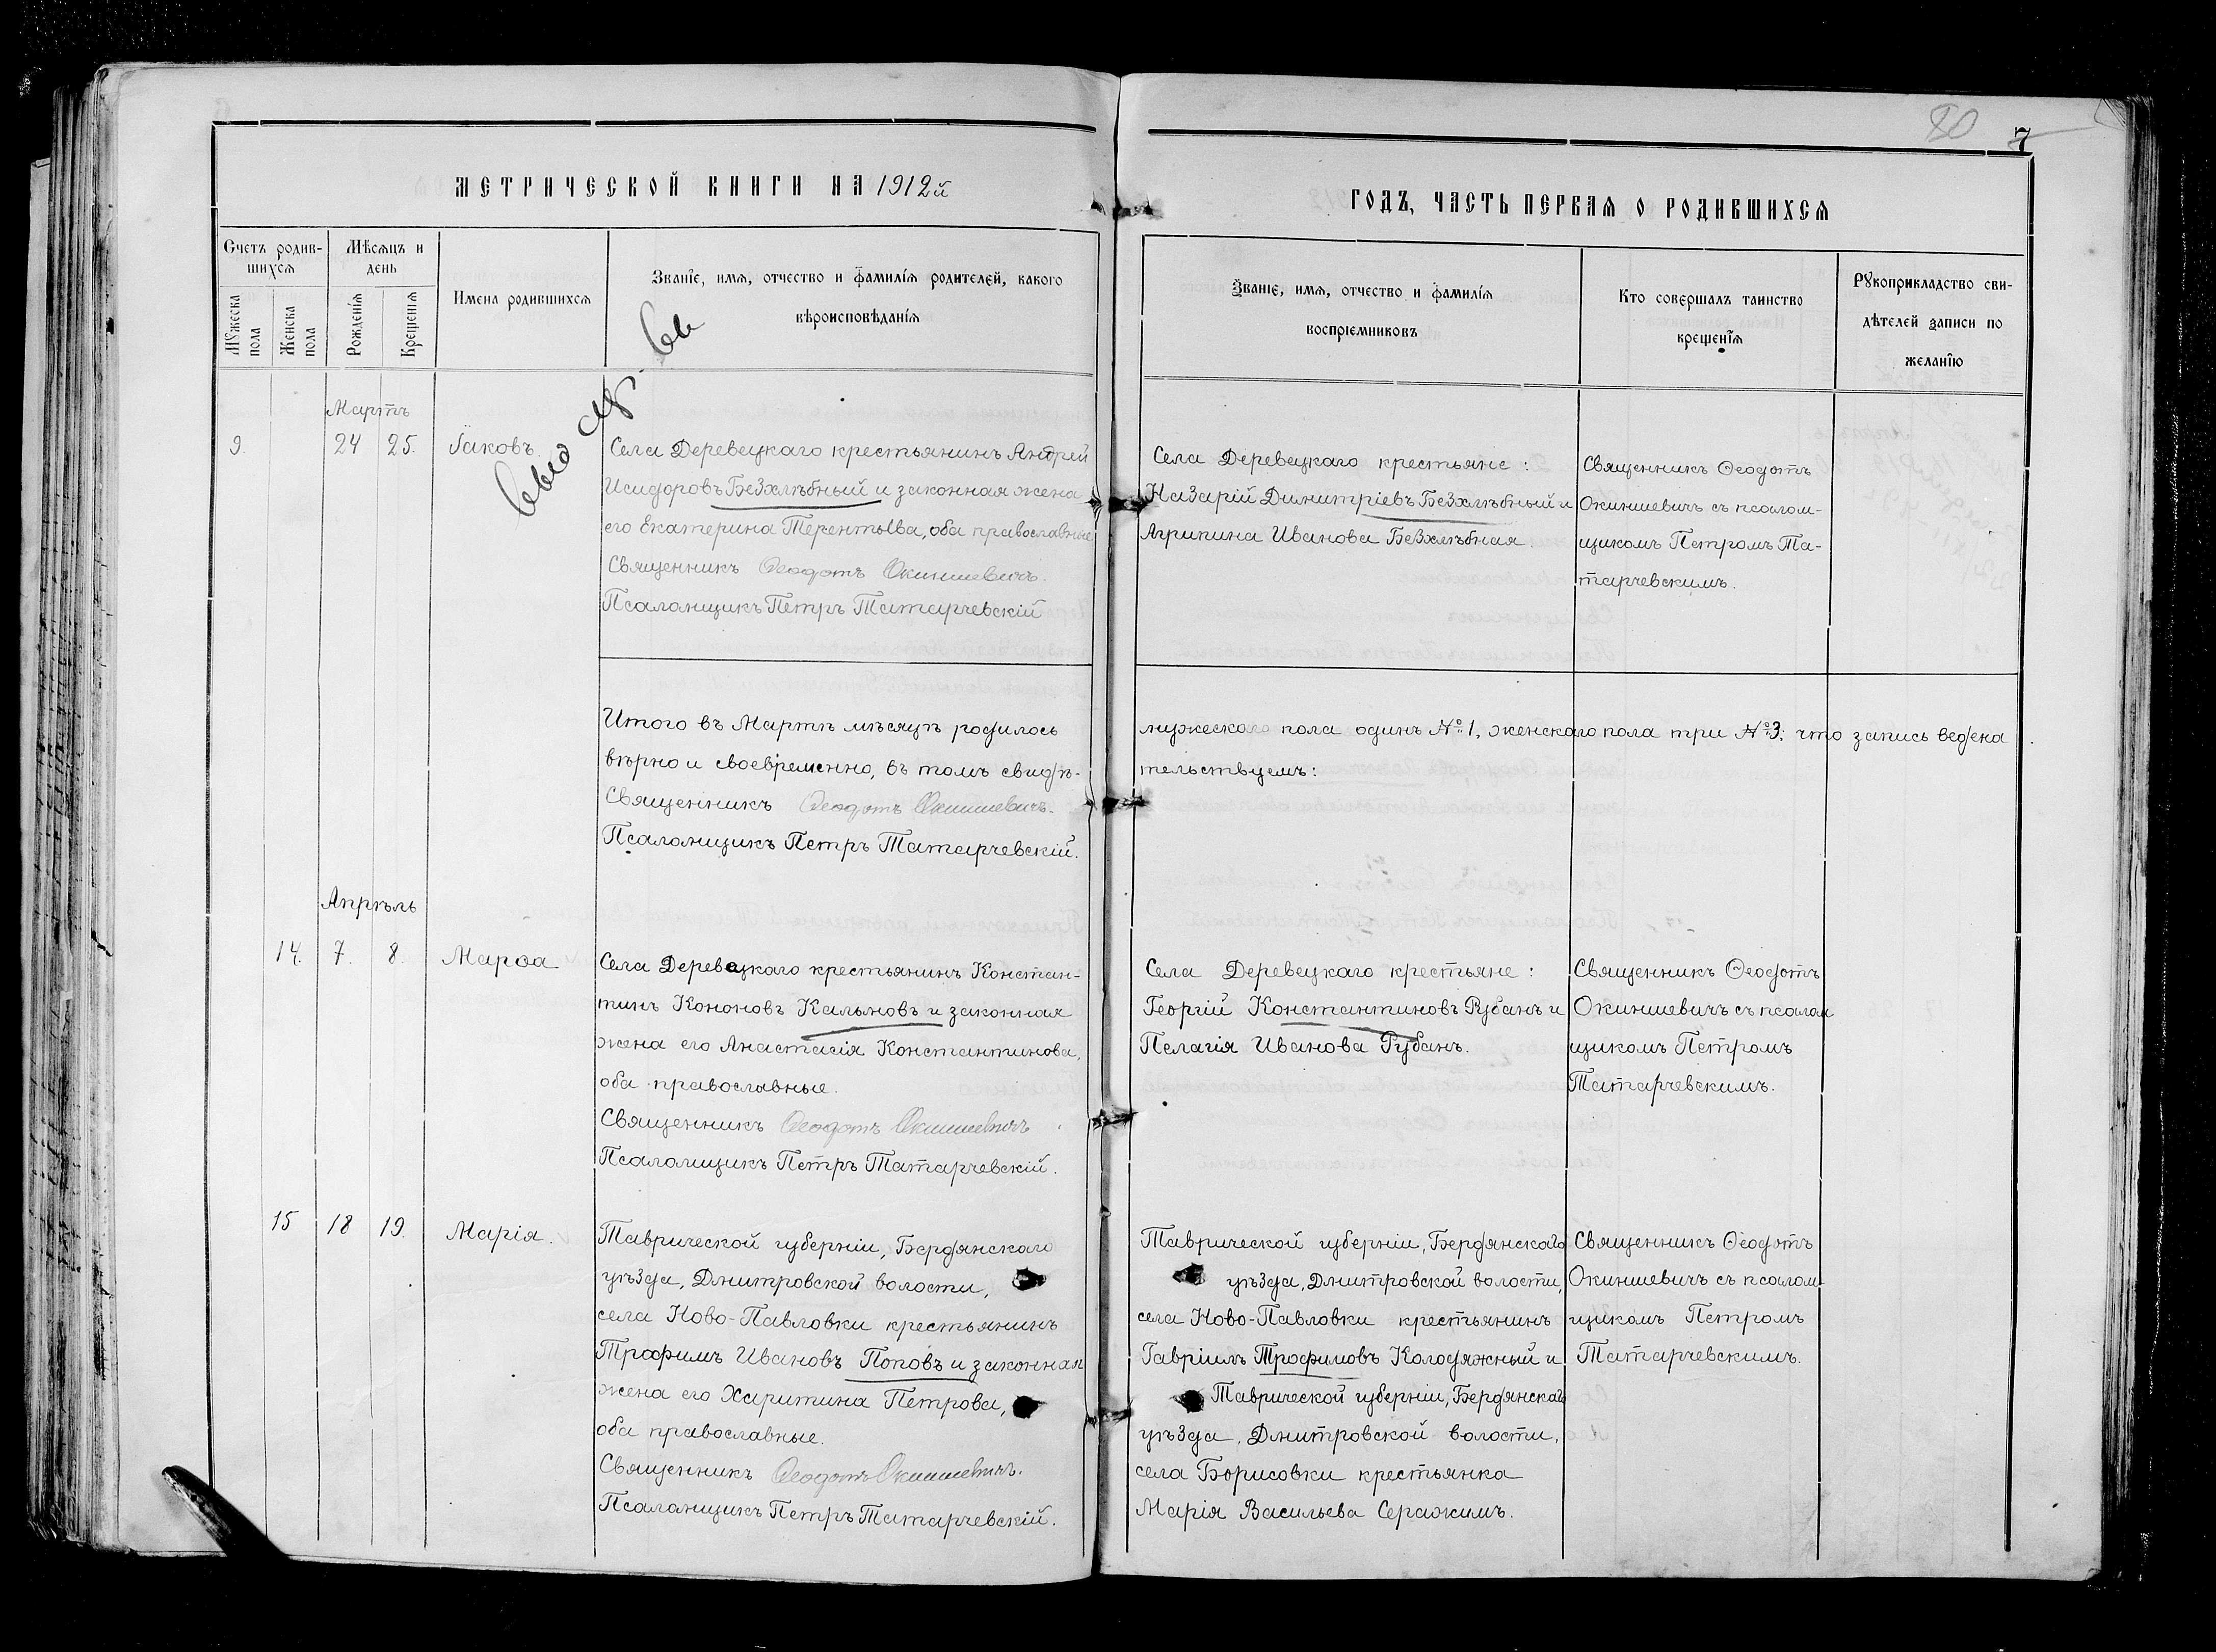 80
7
МЕТРИЧЕСКОЙ КНИГИ НА 1912й
Счетъ родив-
шихся
Мѣсяцъ и
день
Мужеска
пола
Женска
пола
Рожденія
Крещенія
Имена родившихся
Званіе, имя, отчество и фамилія родителей, какого
вѣроисповѣданія
Мартъ
9.
24
25.
Іаковъ.
Села Деревецкаго крестьянинъ Андрей
Исидоровъ Безхлѣбный и законная жена
его Екатерина Терентьева, оба православные
Священникъ Ѳеодотъ Окиншевичъ.
Псаломщикъ Петръ Татарчевскій
Итого въ Мартѣ мѣсяцѣ родилось
вѣрно и своевременно, въ томъ свидѣ-
Священникъ Ѳеодотъ Окиншевичъ.
Псаломщикъ Петръ Татарчевскій.
Апрѣль
14.
7.
8.
Марѳа
Села Деревецкаго крестьянинъ Констан-
тинъ Кононовъ Кальновъ и законная
жена его Анастасія Константинова,
оба православные.
Священникъ Ѳеодотъ Окиншевичъ
Псаломщикъ Петръ Татарчевскій.
15
18
19.
Марія.
Таврической губерніи, Бердянскаго
уѣзда, Дмитровской волости,
села Ново-Павловки крестьянинъ
Трофимъ Ивановъ Поповъ и законная
жена его Харитина Петрова,
оба православные.
Священникъ Ѳеодотъ Окиншевичъ.
Псаломщикъ Петръ Татарчевскій.
ГОДЪ, ЧАСТЬ ПЕРВАЯ О РОДИВШИХСЯ
Званіе, имя, отчество и фамилія
воспріемниковъ
Кто совершалъ таинство
крещенія
Рукоприкладство сви-
дѣтелей записи по
желанію
Села Деревецкаго крестьяне:
Назарій Димитріевъ Безхлѣбный и
Агрипина Иванова Безхлѣбная.
Священникъ Ѳеодотъ
Окиншевичъ съ псалом-
щикомъ Петромъ Та-
тарчевскимъ.
мужескаго пола одинъ №1, женскаго пола три №3; что запись ведена
тельствуемъ:
Села Деревецкаго крестьяне:
Георгій Константиновъ Рубанъ и
Пелагія Иванова Рубанъ.
Священникъ Ѳеодотъ
Окиншевичъ съ псалом
щикомъ Петромъ
Татарчевскимъ.
Таврической губерніи, Бердянскаго
уѣзда, Дмитровской волости,
села Ново-Павловки крестьянинъ
Гавріилъ Трофимовъ Колодяжный и
Таврической губерніи, Бердянскаго
уѣзда, Дмитровской волости,
села Борисовки крестьянка
Марія Васильева Серажимъ.
Священникъ Ѳеодотъ
Окиншевичъ съ псалом-
щикомъ Петромъ
Татарчевскимъ.